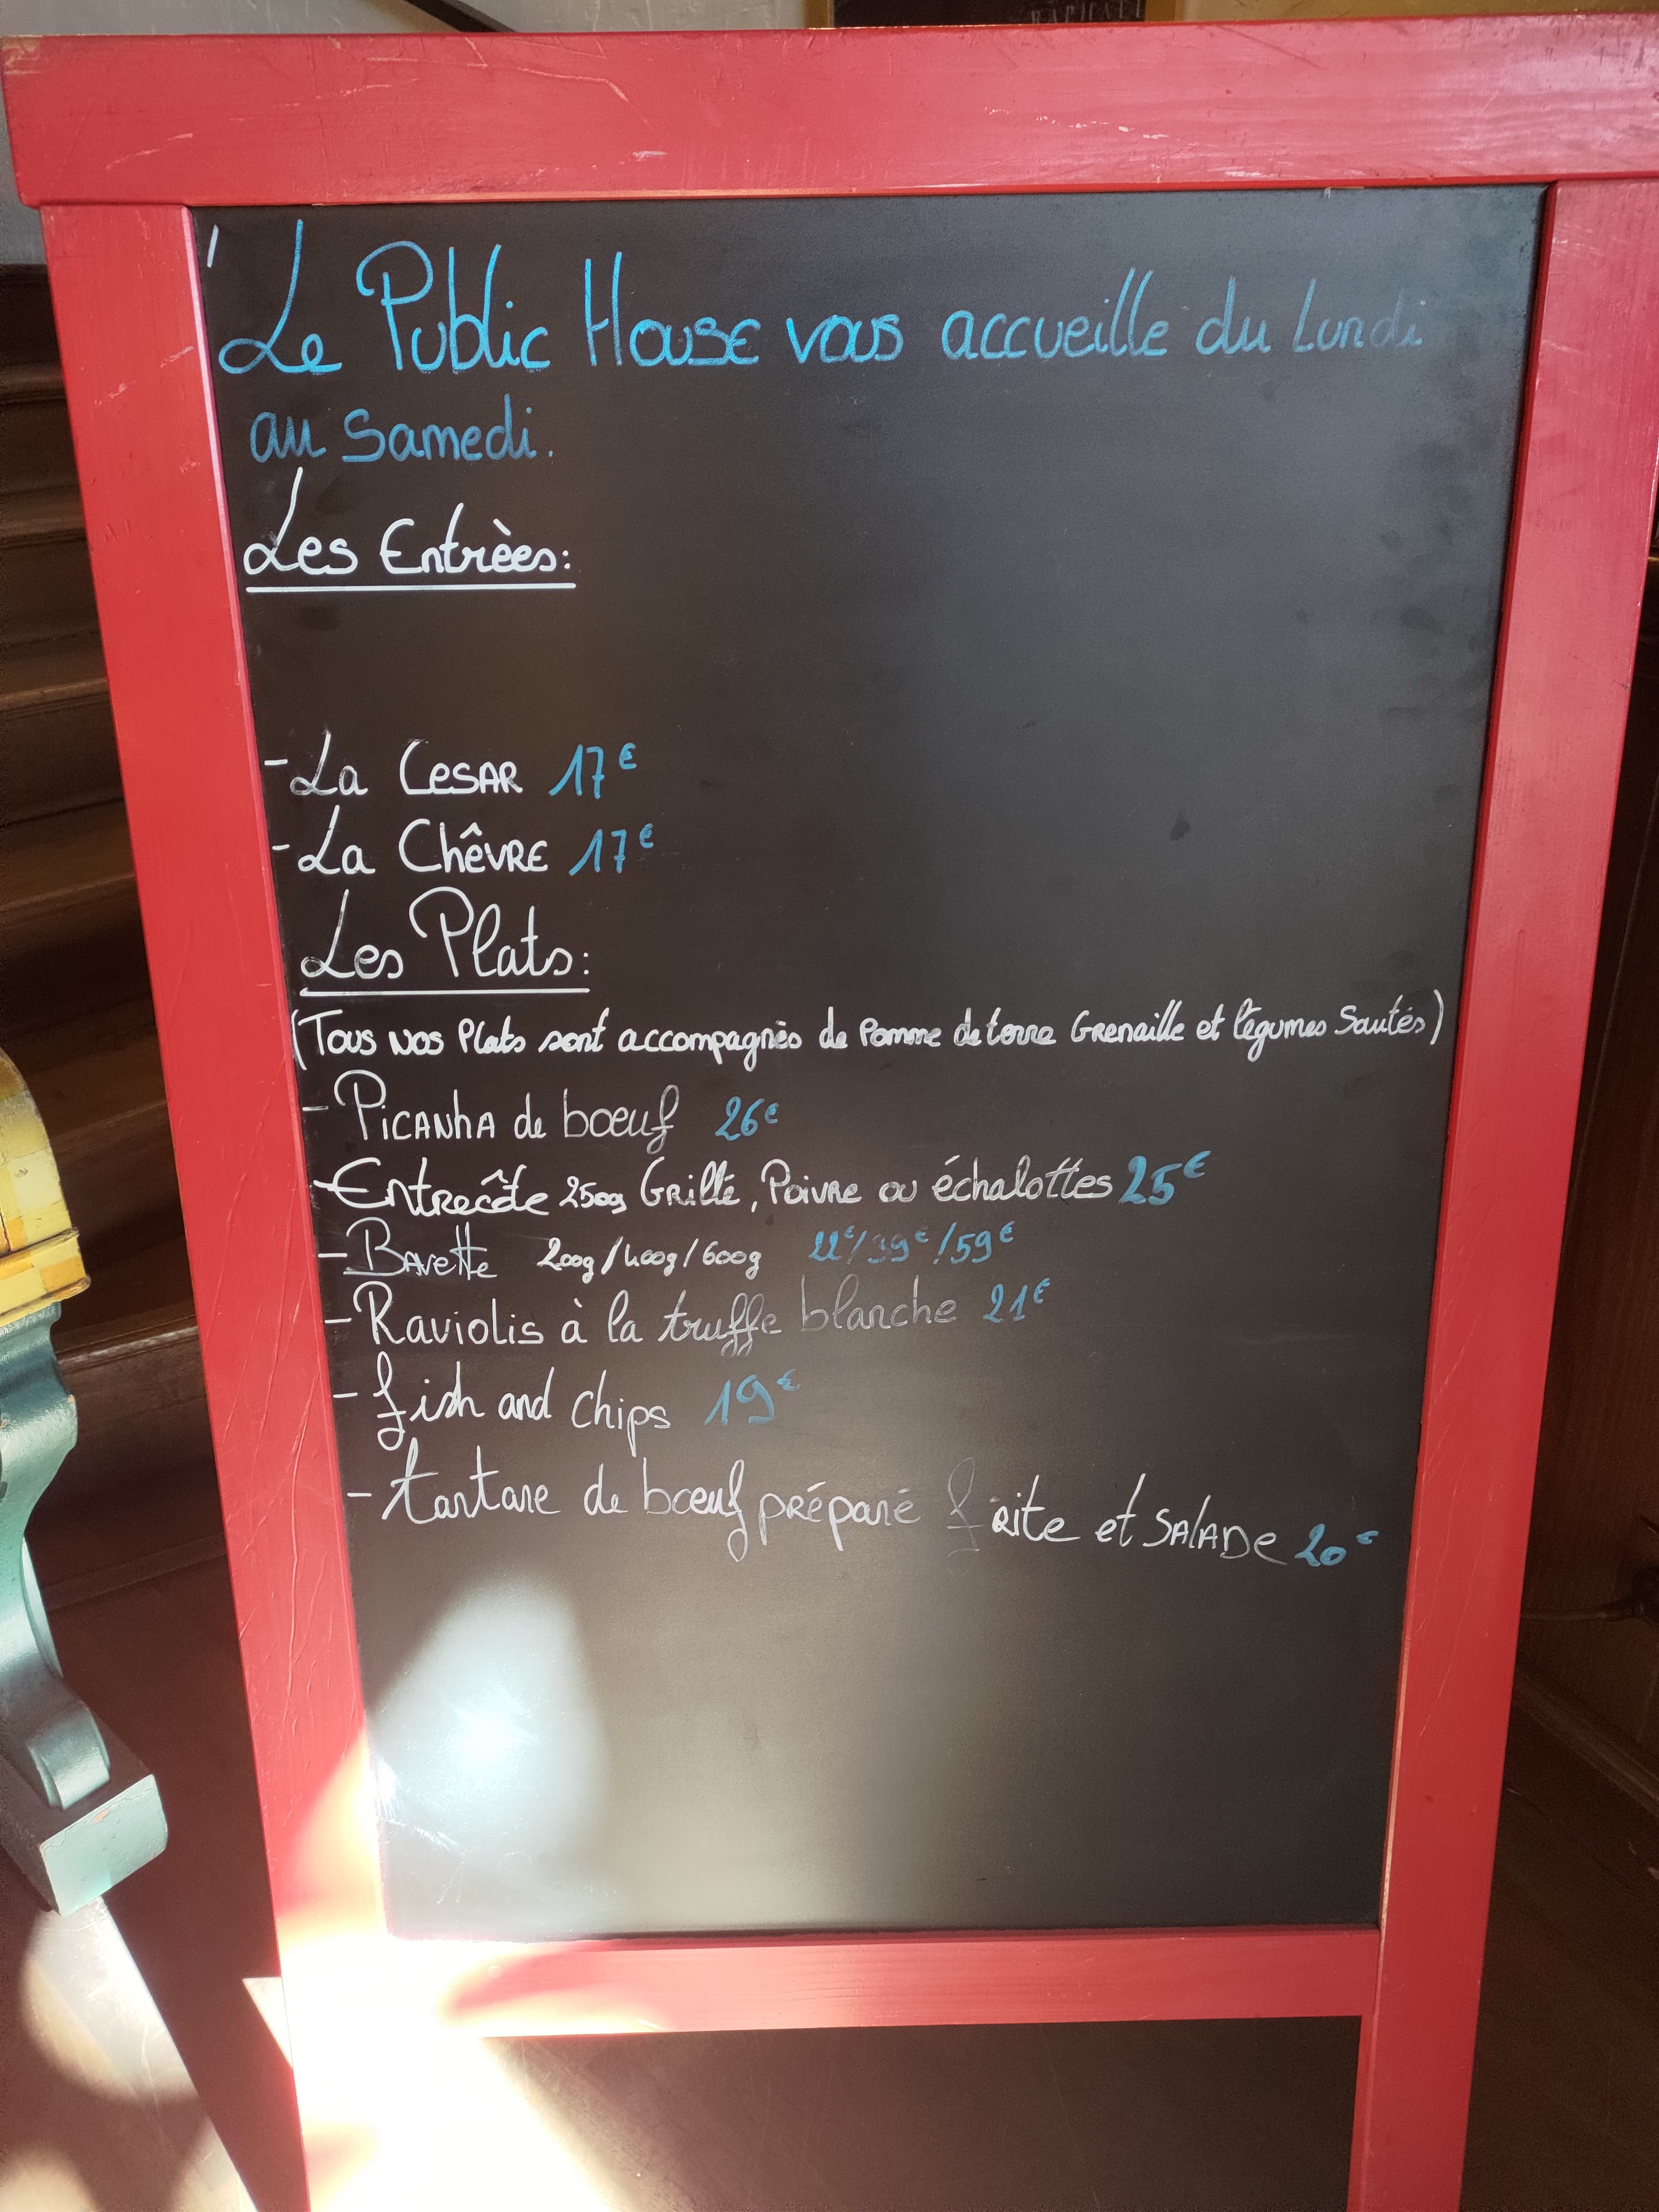 Le Public House vous accueille du Lundi
au Samedi.
Les Entrèes:
- La CESAR 17€
- La Chêvre 17€
Les Plats:
(Tous nos Plats sont accompagnès de Pomme de terre Grenaille et légumes Sautés)
- Picanha de bœuf 26€
- Entrecôte 250g Grillé, Poivre ou échalottes 25€
- Bavette 200g/400g/600g 22€/39€/59€
- Raviolis à la truffe blanche 21€
- fish and chips 19€
- tartare de bœuf préparé frite et SALADE 20€